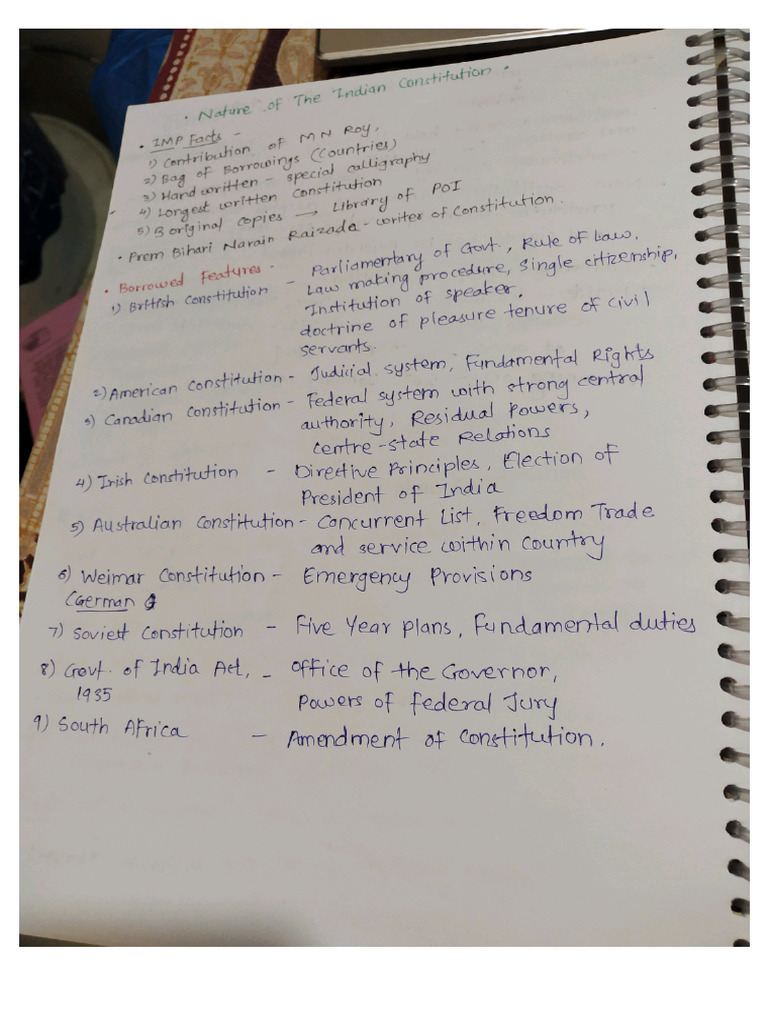 • Nature of The Indian Constitution •
• IMP Facts -
1) Contribution of M N Roy.
2) Bag of Borrowings (Countries)
3) Hand written - special calligraphy
4) Longest written Constitution
5) 3 original copies → Library of POI
• Prem Bihari Narain Raizada - writer of Constitution.
• Borrowed Features -
1) British Constitution - Parliamentary of Govt, Rule of Law,
Law making procedure, Single citizenship,
Institution of speaker.
doctrine of pleasure tenure of civil
servants.
2) American Constitution - Judicial system, Fundamental Rights
3) Canadian Constitution - Federal system with strong central
authority, Residual Powers,
centre-state Relations
4) Irish Constitution - Directive Principles, Election of
President of India
5) Australian Constitution - Concurrent List, Freedom Trade
and service within Country
6) Weimar Constitution - Emergency Provisions
(German)
7) Soviest Constitution - Five Year plans, Fundamental duties
8) Govt. of India Act, - Office of the Governor,
1935 Powers of federal Jury
9) South Africa - Amendment of constitution.